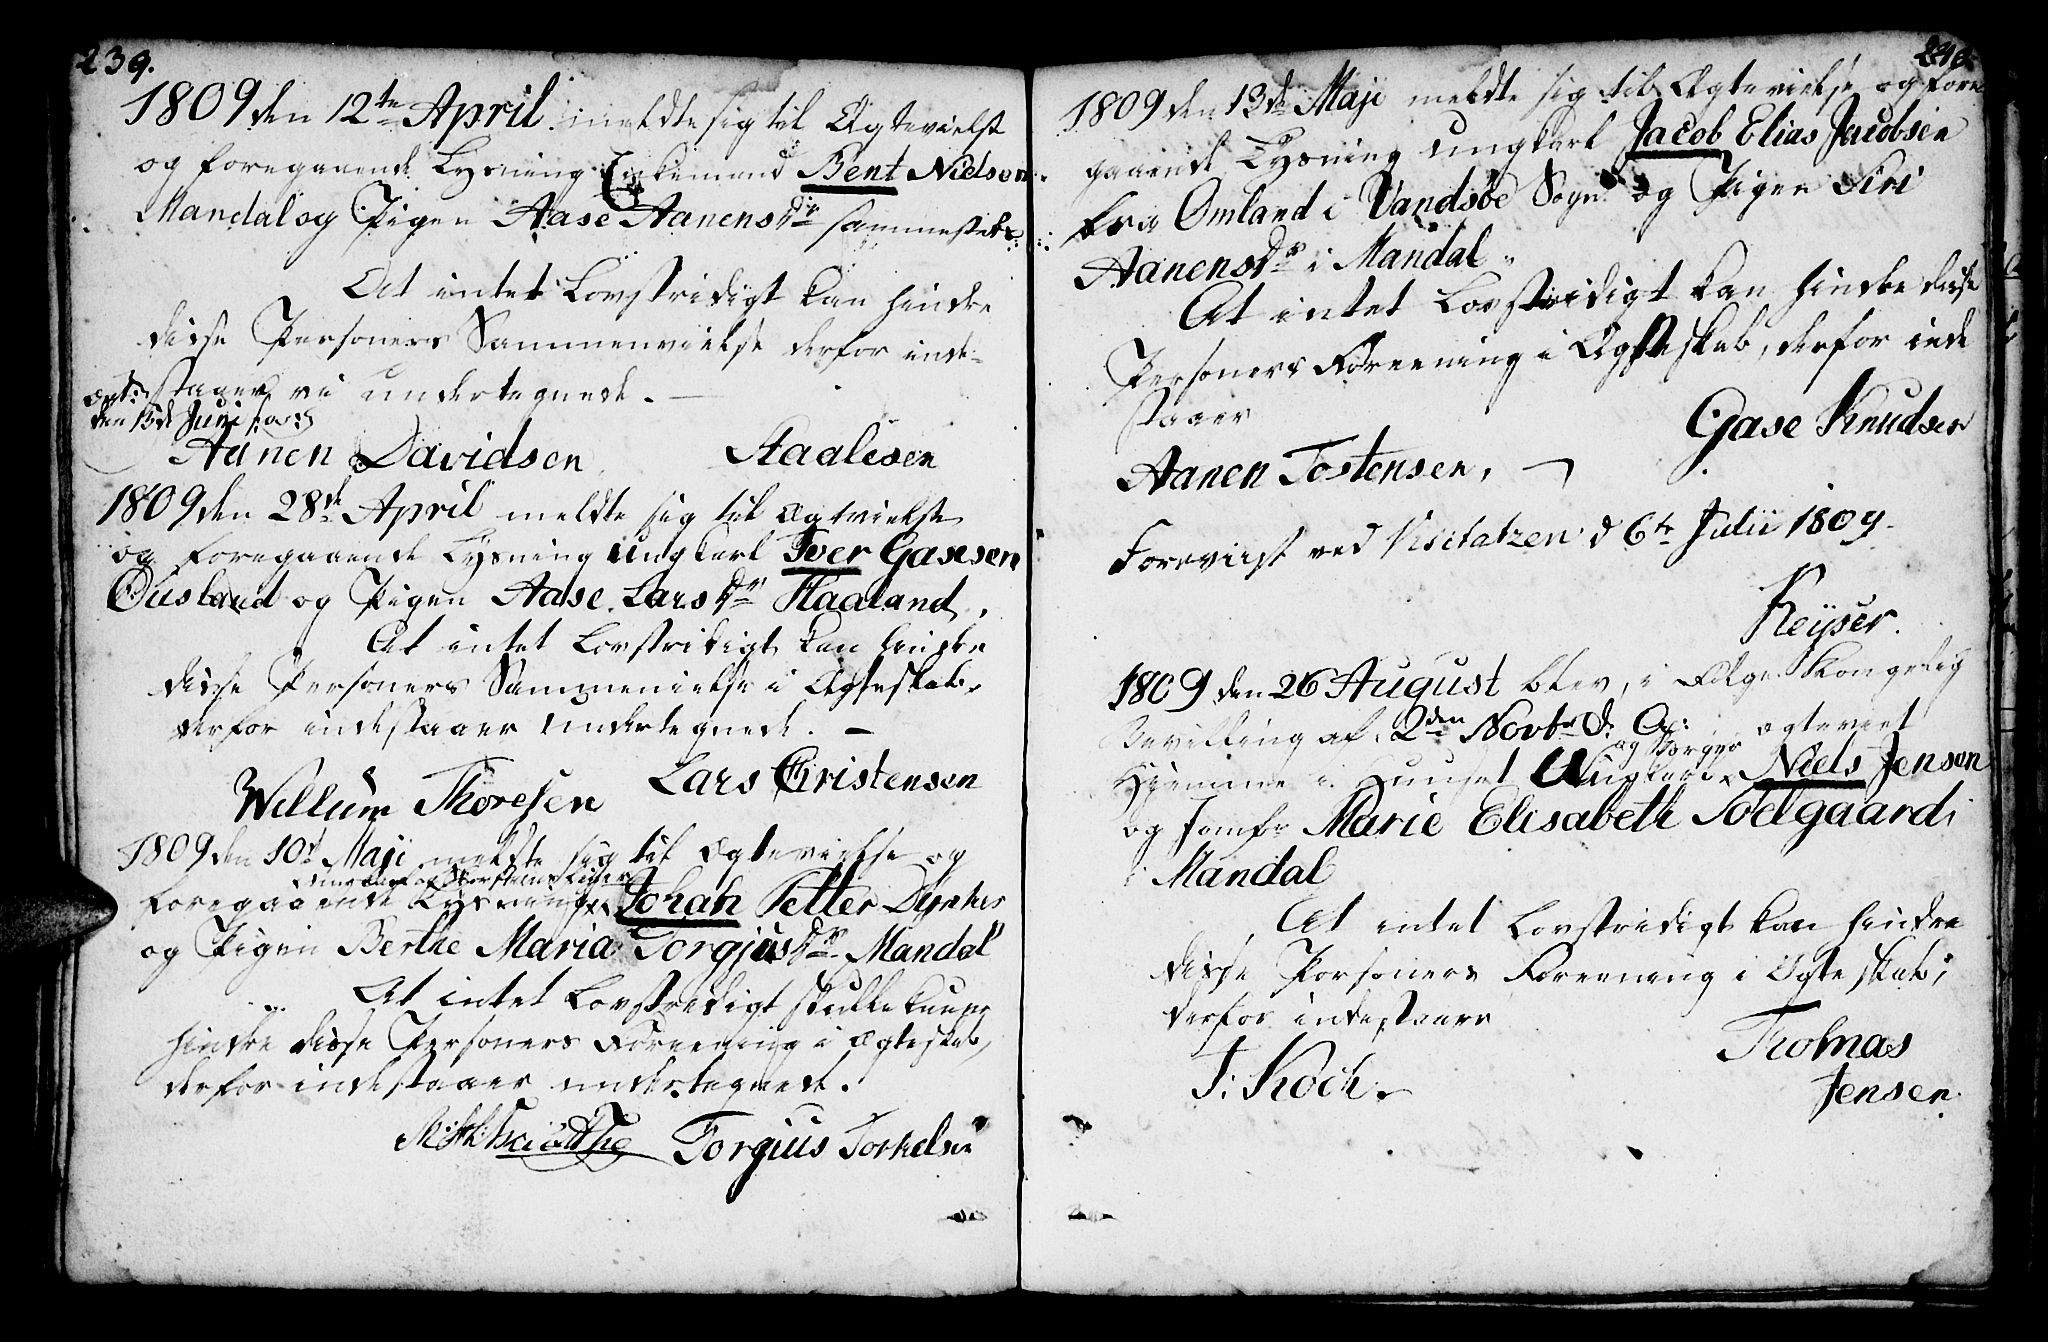 239.
1809 den 12te April meldte sig til Ægtevielse
og foregaaende Lysning Enkemand Bent Nielsen
Mandal og Pigen Aase Aanensdr sammesteds
At intet Lovstridigt kan hindre
disse Personers Sammenvielse derfor inde-
staaer vi undertegnede. —
den 15de Junj
Aanen Davidsen Staalesen
1809 den 28de April meldte sig til Ægtvielse
og foregaaende Lysning ungkarl Iver Gasesen
Øusland og Pigen Aase Larsdr Haaland.
At intet Lovstridigt kan hindre
disse Personers Sammenvielse i Ægteskab,
derfor indestaaer undertegnede. —
Willum Thoresen Lars Christensen
1809 den 10d Maji meldte sig til Ægtevielse og
foregaaende Lysning Johan Petter
og Pigen Berthe Maria Torgjusdr Mandal
At intet Lovstridigt skulle kunne
hindre disse Personers Foreening i Ægteskab,
derfor indestaaer undertegnede.
Torgius Torkelsen
240.
1809 den 13de Maji meldte sig til Ægtevielse og fore
gaaende Lysning ungkarl Jacob Elias Jacobsen
fra Omland i Vandsøe Sogn og Pigen Siri
Aanensdr i Mandal.
At intet Lovstridigt kan hindre disse
Personers Foreening i Ægteskab, derfor inde
staaer
Gase Knudsen
Aanen Tostensen.
Foreviist ved Visitatzen d 6te Julii 1809.
Keyser.
1809 den 26 August blev, i Følge Kongelig
Bevilling af 2den Novbr d: A: ægteviet
og Borger
hiemme i Huuset Ungkarl Niels Jensen
og Jomfr Marie Elisabeth Toelgaard i
Mandal
At intet Lovstridigt kan hindre
disse Personers Foreening i Ægteskab,
derfor indestaaer
J: Koch. Thomas
Jensen.